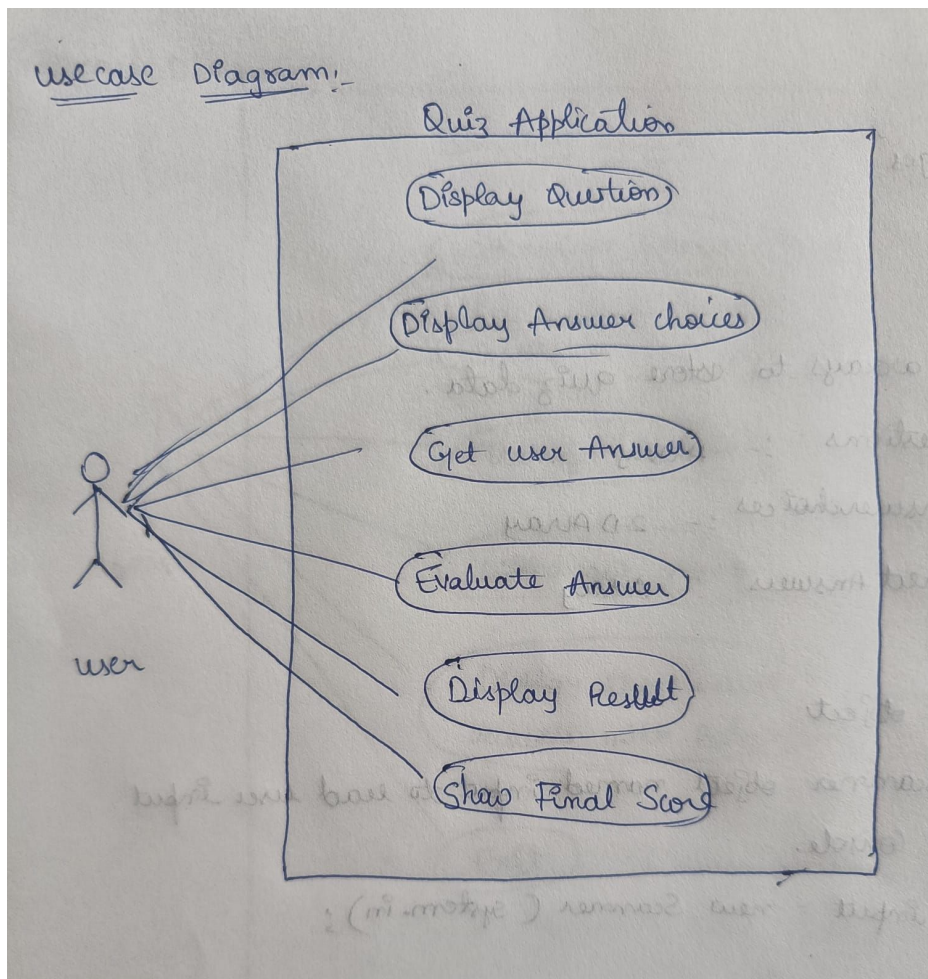 usecase Diagram:
Quiz Application
Display Question
Display Answer choices
Get user Answer
Evaluate Answer
user
Display Result
Show Final Score